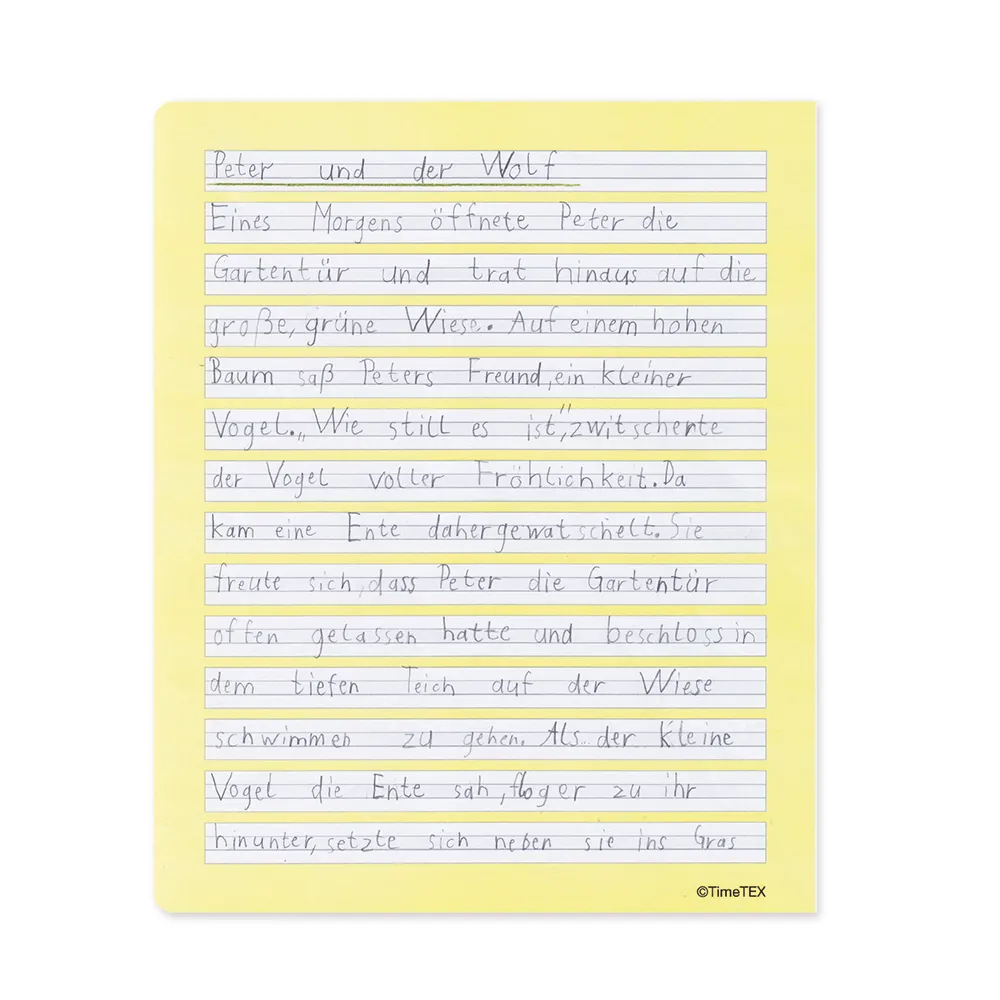 Peter und der Wolf
Eines Morgens öffnete Peter die
Gartentür und trat hinaus auf die
große, grüne Wiese. Auf einem hohen
Baum saß Peters Freund, ein kleiner
Vogel. „Wie still es ist," zwitscherte
der Vogel voller Fröhlichkeit. Da
kam eine Ente dahergewatschelt. Sie
freute sich, dass Peter die Gartentür
offen gelassen hatte und beschloss in
dem tiefen Teich auf der Wiese
schwimmen zu gehen. Als der kleine
Vogel die Ente sah, flog er zu ihr
hinunter, setzte sich neben sie ins Gras
©TimeTEX